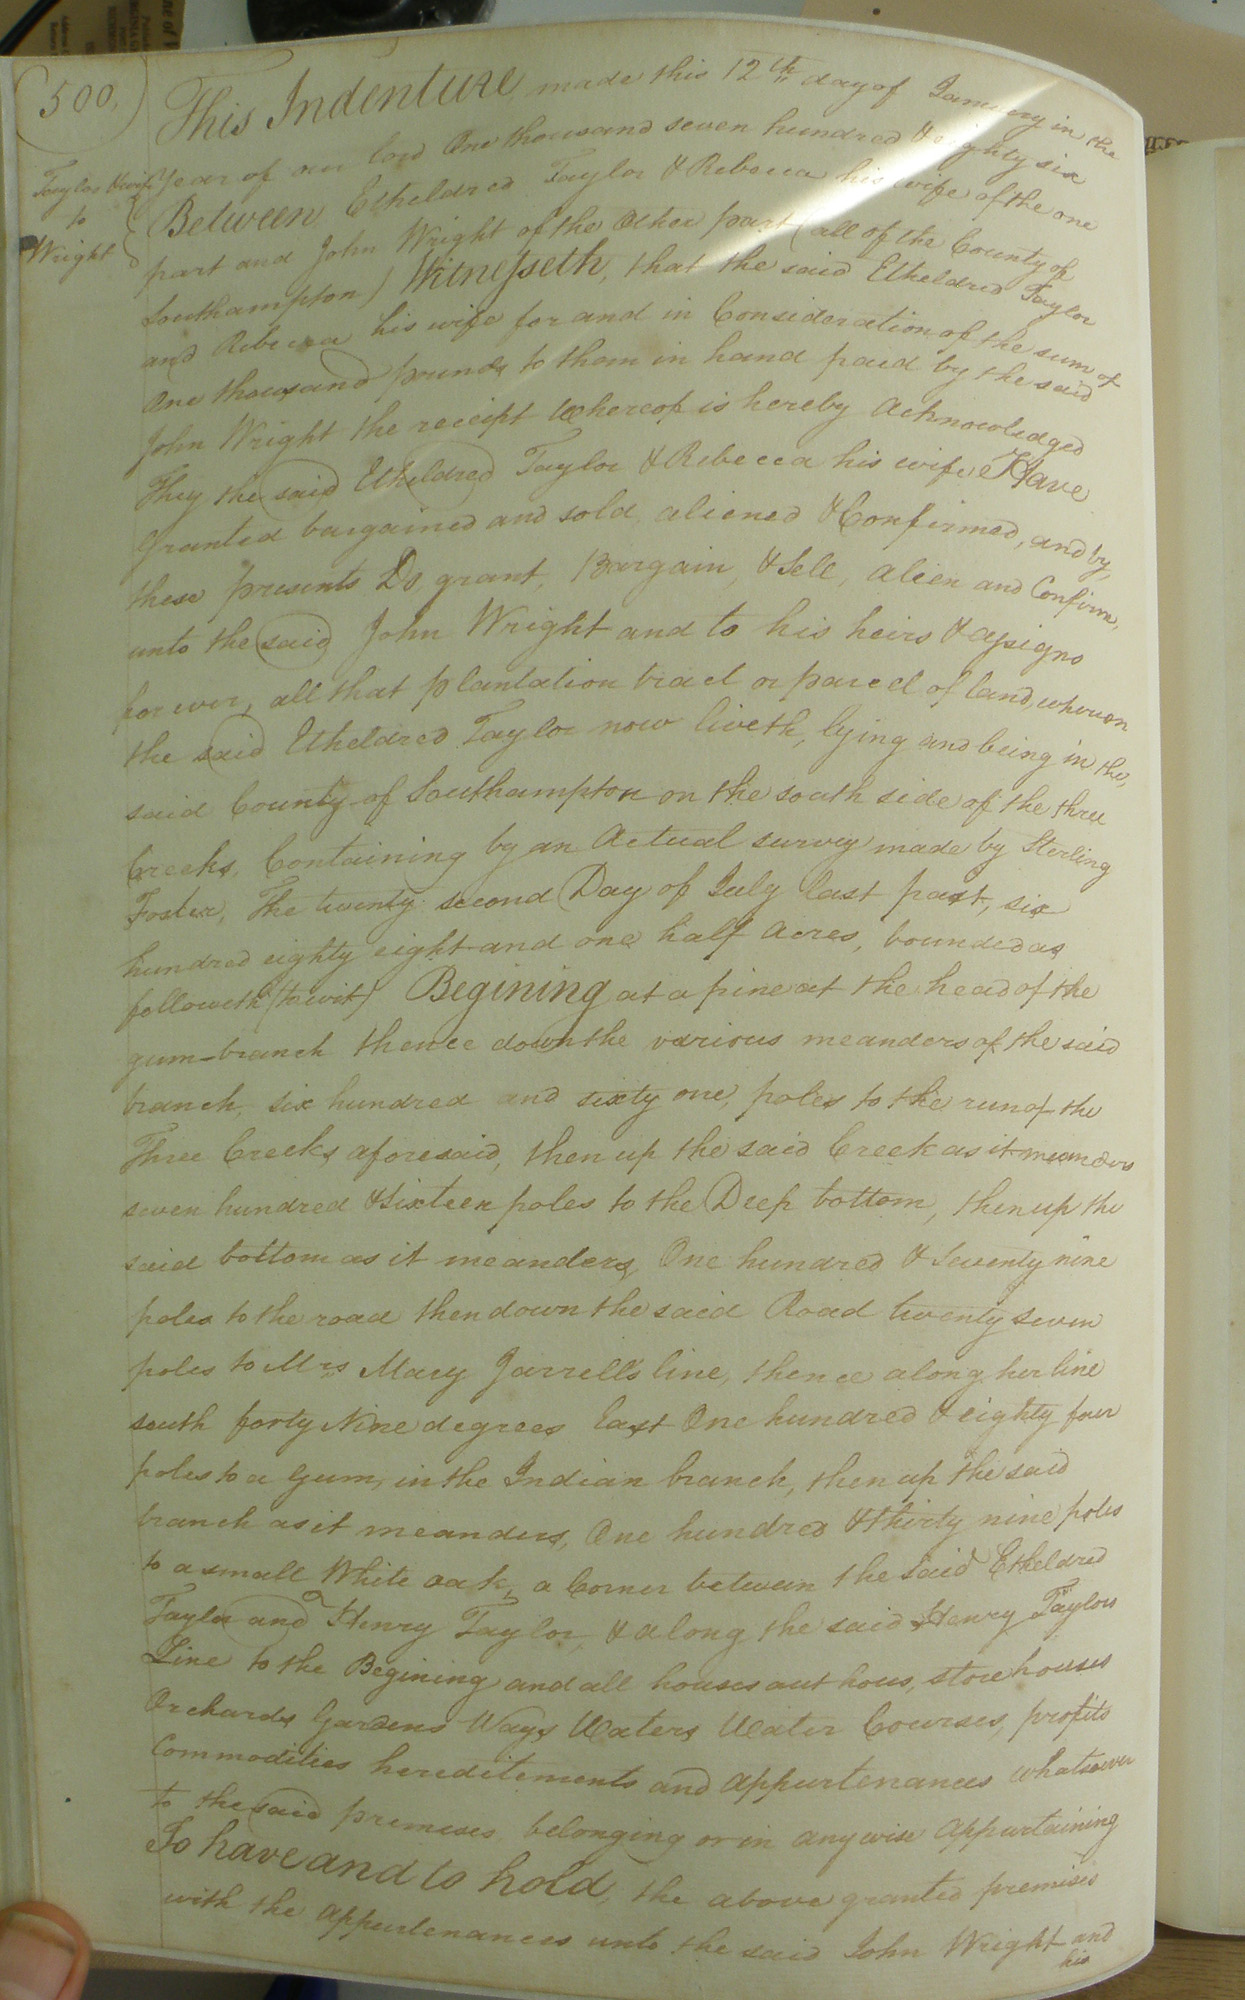 500.
Taylor & wife
to
Wright
This Indenture, made this 12th day of January in the
year of our lord One thousand seven hundred & eighty six
Between Etheldred Taylor & Rebecca his wife of the one
part and John Wright of the Other part (all of the County of
Southampton) Witnesseth, that the said Etheldred Taylor
and Rebecca his wife for and in Consideration of the sum of
One thousand pounds to them in hand paid by the said
John Wright the receipt whereof is hereby Acknowledged
They the said Etheldred Taylor & Rebecca his wife Have
granted bargained and sold, aliened & Confirmed, and by,
these presents Do, grant, Bargain, & Sell, alien and Confirm,
unto the said John Wright and to his heirs & assigns
forever, all that plantation tract or parcel of land, whereon
the said Etheldred Taylor now liveth, lying and being in the,
said County of Southampton on the south side of the three
Creeks, Containing by an Actual survey made by Sterling
Foster, The twenty second Day of July last past, six
hundred eighty eight and one half Acres, bounded as
followeth (to wit) Begining at a pine at the head of the
gum-branch thence down the various meanders of the said
branch, six hundred and sixty one, poles to the run of the
Three Creeks aforesaid, then up the said Creek as it meanders
seven hundred & sixteen poles to the Deep bottom, then up the
said bottom as it meanders, One hundred & Seventy nine
poles to the road then down the said Road twenty seven
poles to Mrs Mary Jarrell's line, thence along her line
south forty Nine degrees East One hundred & eighty four
poles to a Gum, in the Indian branch, then up the said
branch as it meanders, One hundred & thirty nine poles
to a small White oak, a Corner between the said Etheldred
Taylor and Henry Taylor, & along the said Henry Taylors
Line to the Begining and all houses out hous, store houses
Orchards, Gardens Ways Waters Water Courses, profits
Commodities hereditements and appurtenances whatsoever
to the said premises belonging or in any wise appurtaining
To have and to hold, the above granted premises
with the appurtenances unto the said John Wright and
his